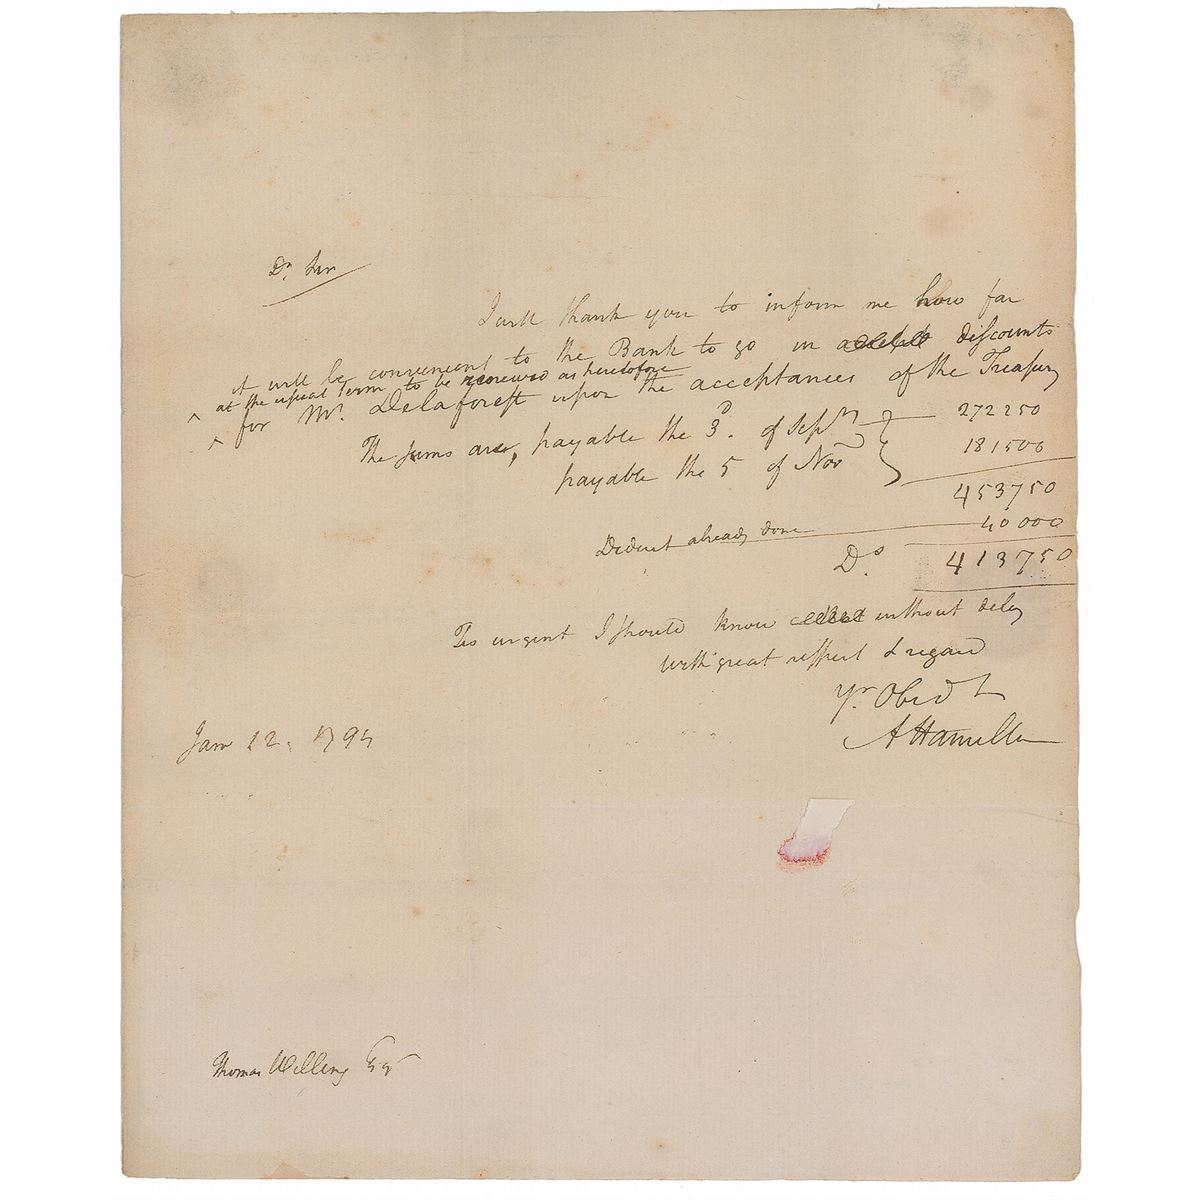 Dr Sir
I will thank you to inform me how far
it will be convenient to the Bank to go in discounts
^ at the usual term to be renewed as heretofore
^ for Mr. Delaforest upon the acceptances of the Treasury
The sums are, payable the 3d. of Sepr 272250
payable the 5 of Novr 181500
453750
Deduct already done 40000
Ds. 413750
Tis urgent I should know without delay
with great respect & regard
Yr. Obed
A Hamilton
Jan 12. 1794
Thomas Willing Esqr